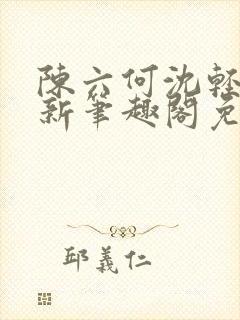 陳六何沈輕
新筆趣閣免
邱義仁